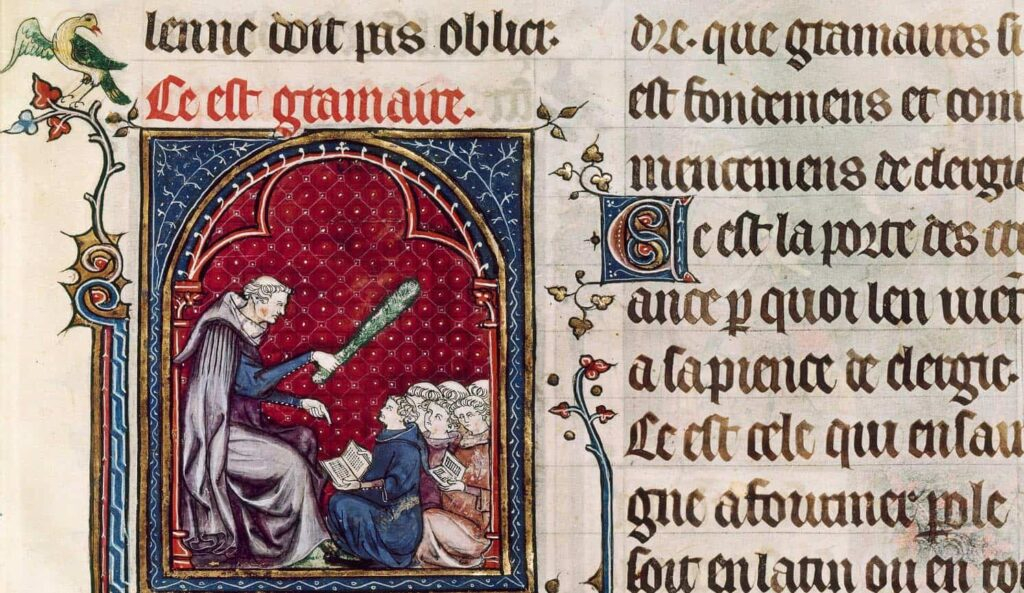 lenne doit pas oblier.
Ce est gramaire.
dre. que gramaires
est fondemens et com
mencemens de clergie
Ce est la porte des
ance p quoi len vient
a sapience de clergie.
Ce est cele qui ensai
gne a fourmer pole
soit en latin ou en ro